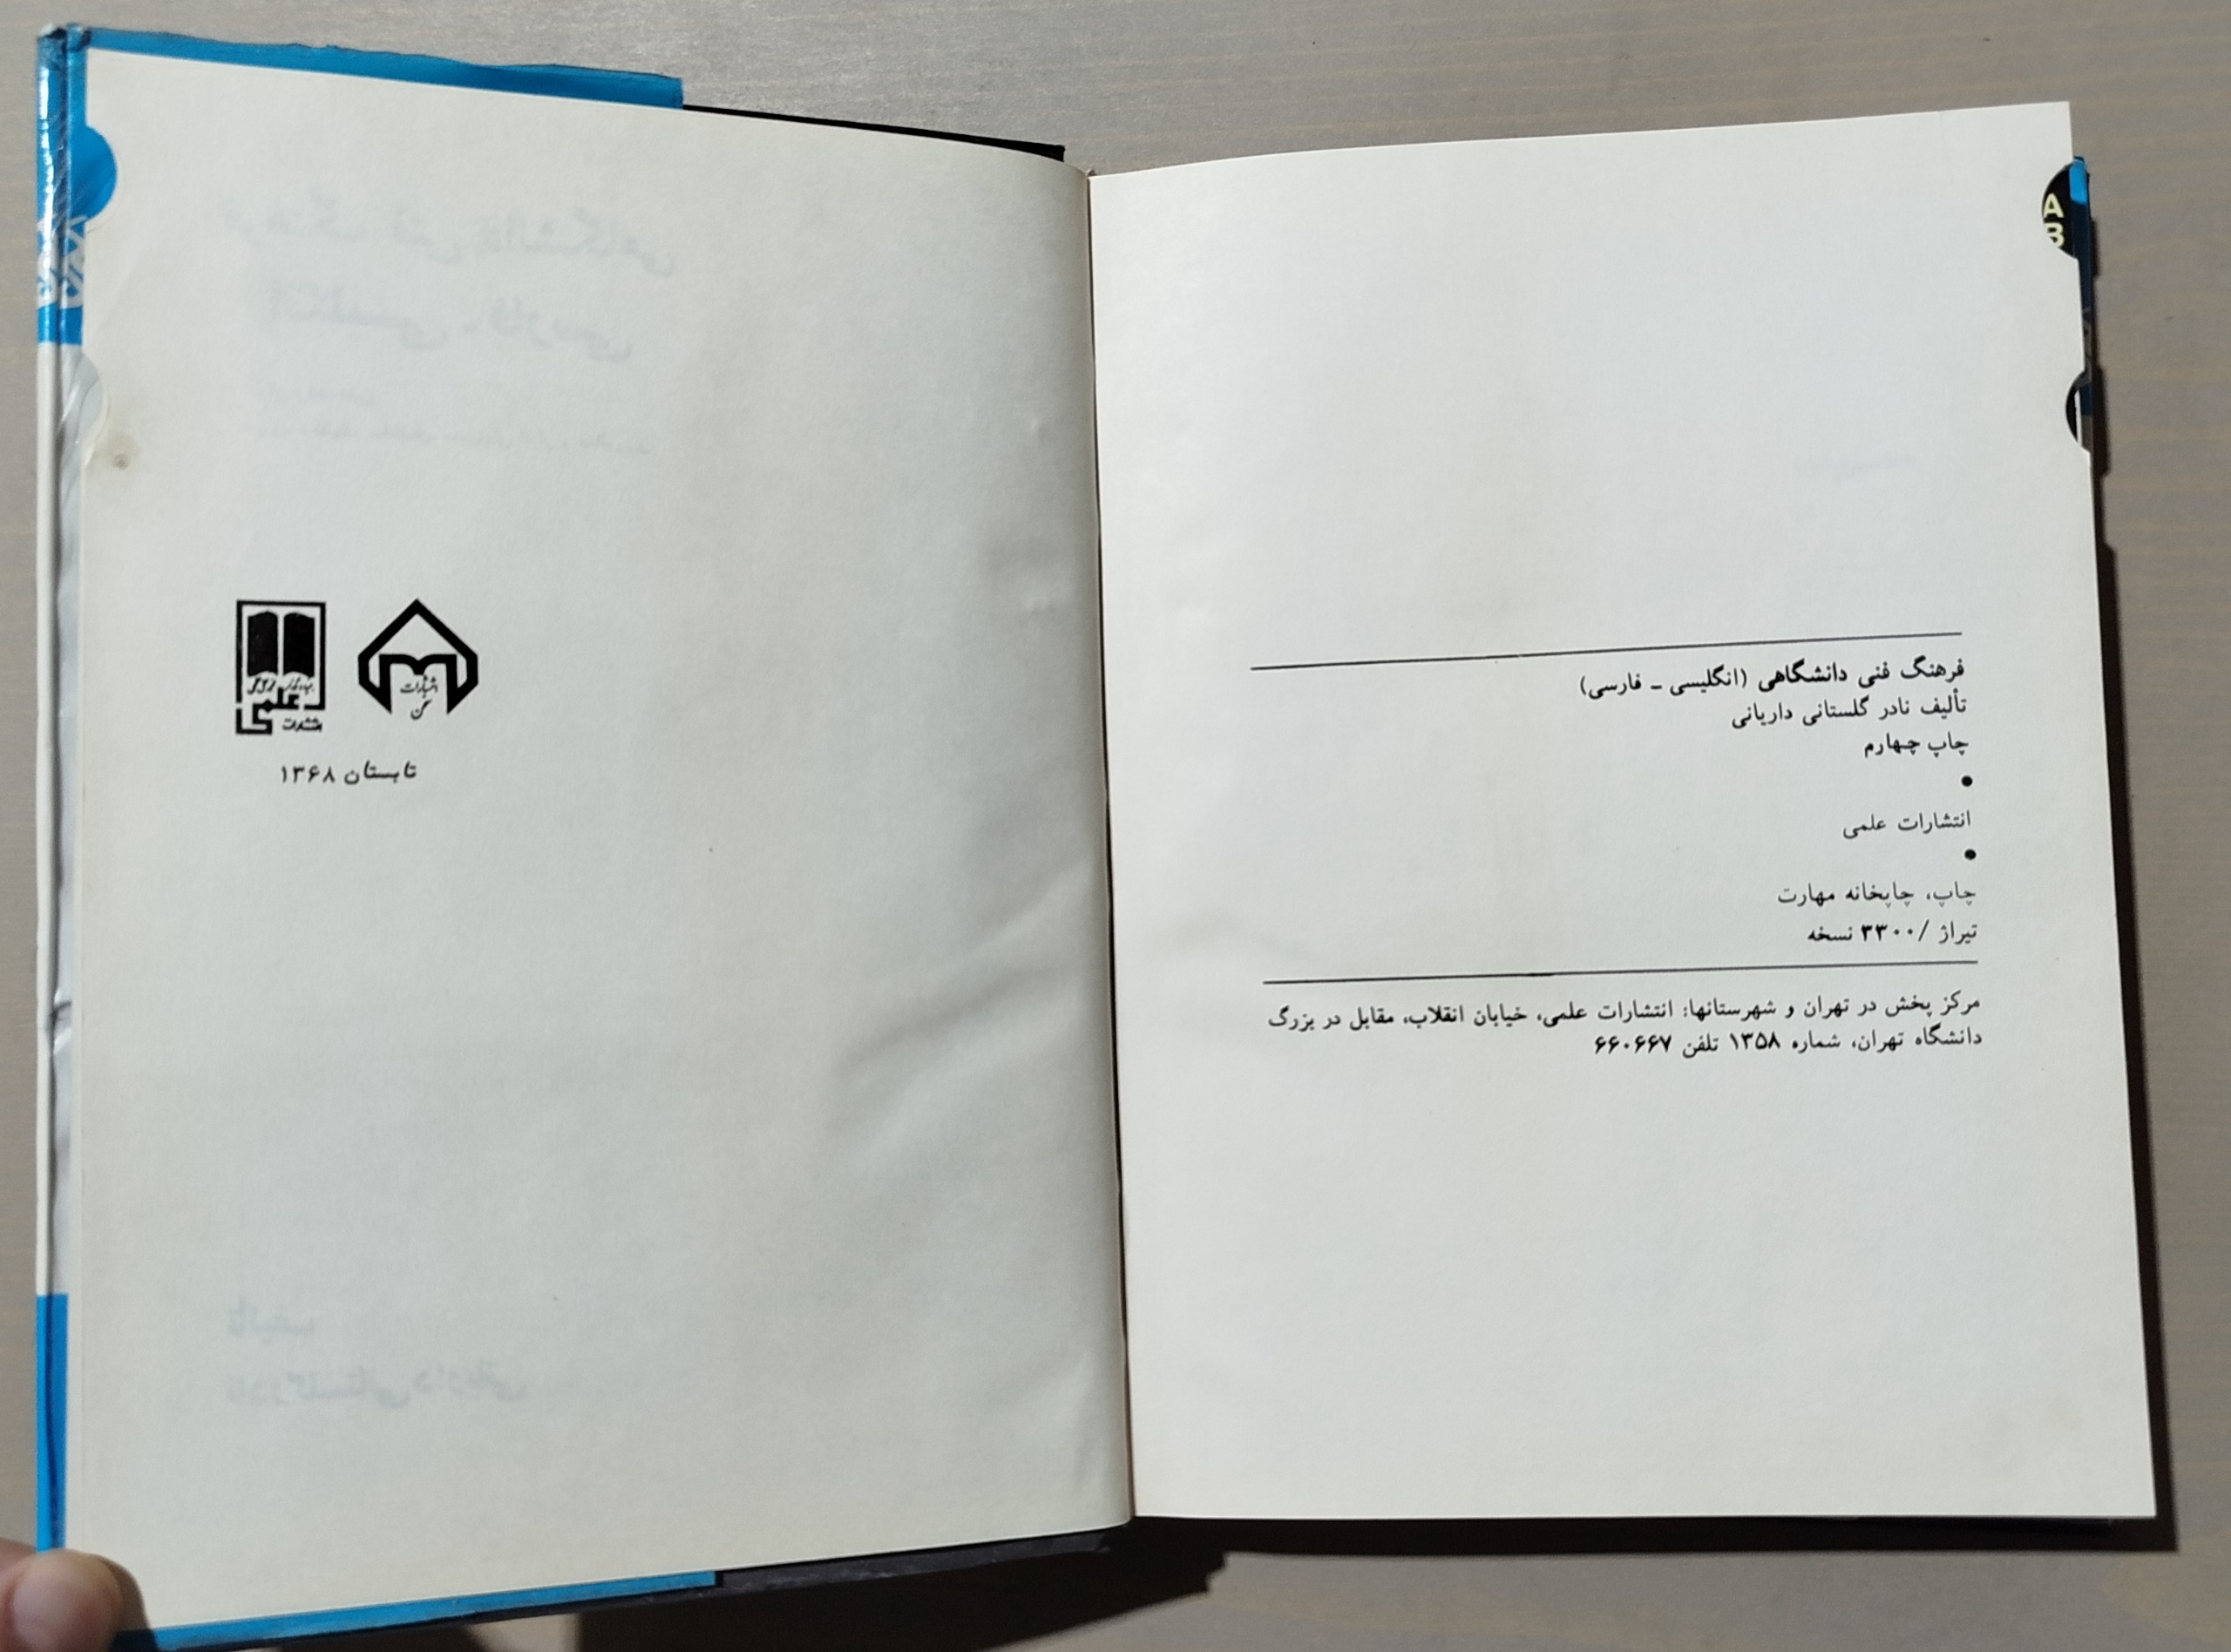 انتشارات
سخن
علمی
انتشارات
تابستان ۱۳۶۸
A
B
فرهنگ فنی دانشگاهی (انگلیسی ـ فارسی)
تألیف نادر گلستانی داریانی
چاپ چهارم
•
انتشارات علمی
•
چاپ، چاپخانه مهارت
تیراژ / ۳۳۰۰ نسخه
مرکز پخش در تهران و شهرستانها: انتشارات علمی، خیابان انقلاب، مقابل در بزرگ
دانشگاه تهران، شماره ۱۳۵۸ تلفن ۶۶۰۶۶۷